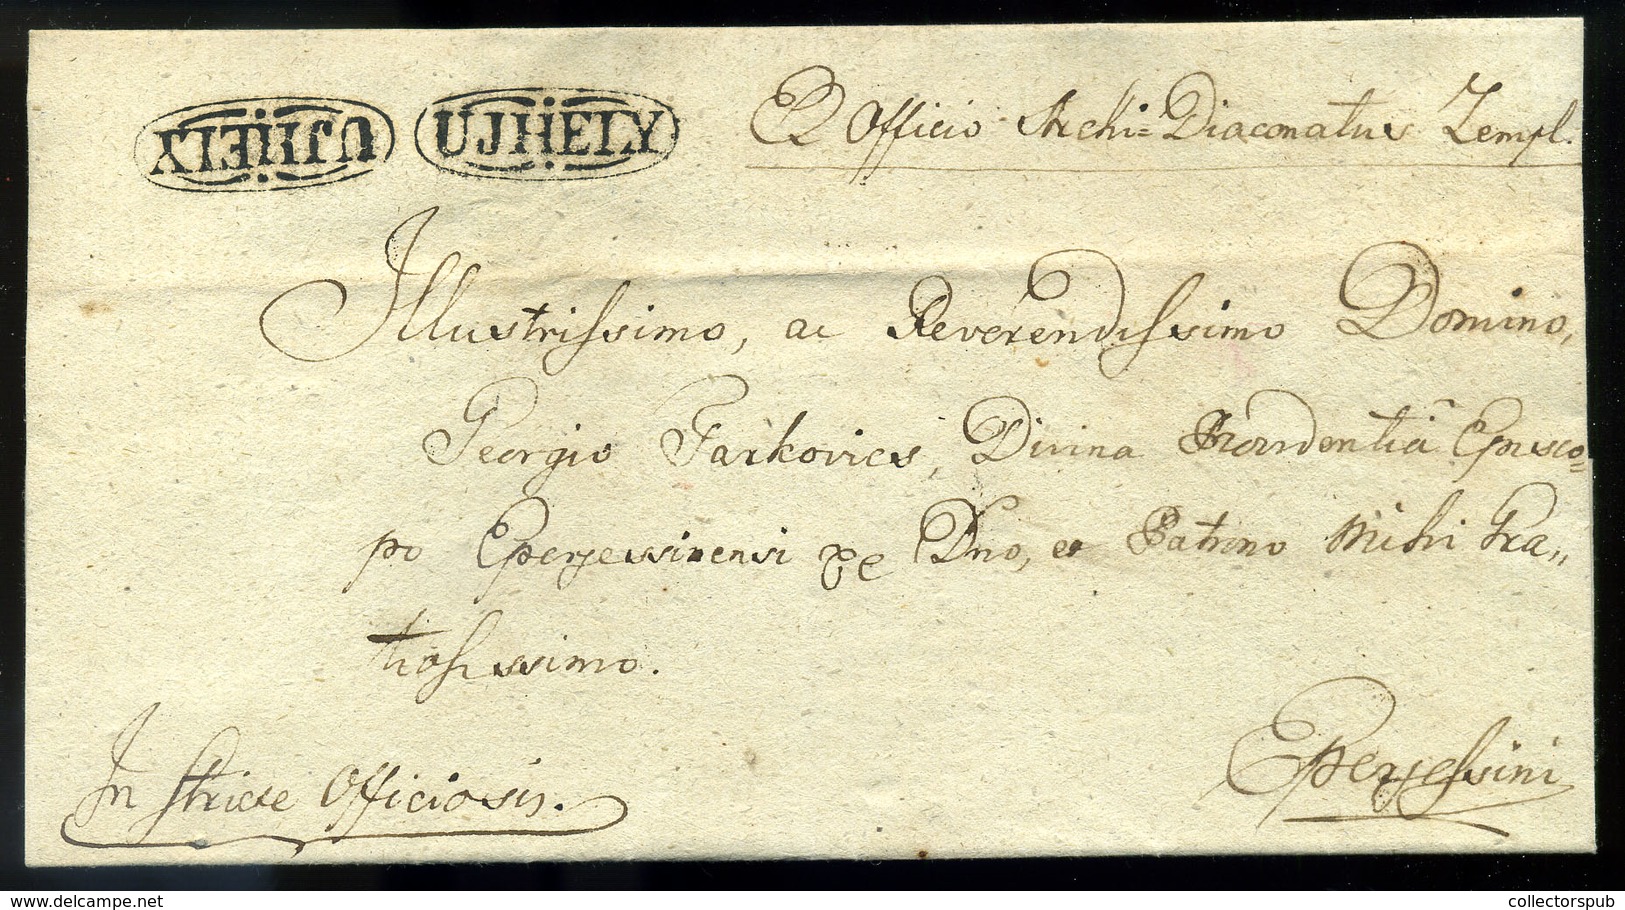 UJHELY UJHELY
Ex Officio Archi=Diaconatus Zempl.
Illustrissimo, ac Reverendissimo Domino,
Georgio Farkovics, Divina Providentiâ Episco=
po Eperjessinensi Dno, et Patrono Mihi Gra„
tiosissimo.
In Stricte Officiosis.
Eperjessini
collectorspub